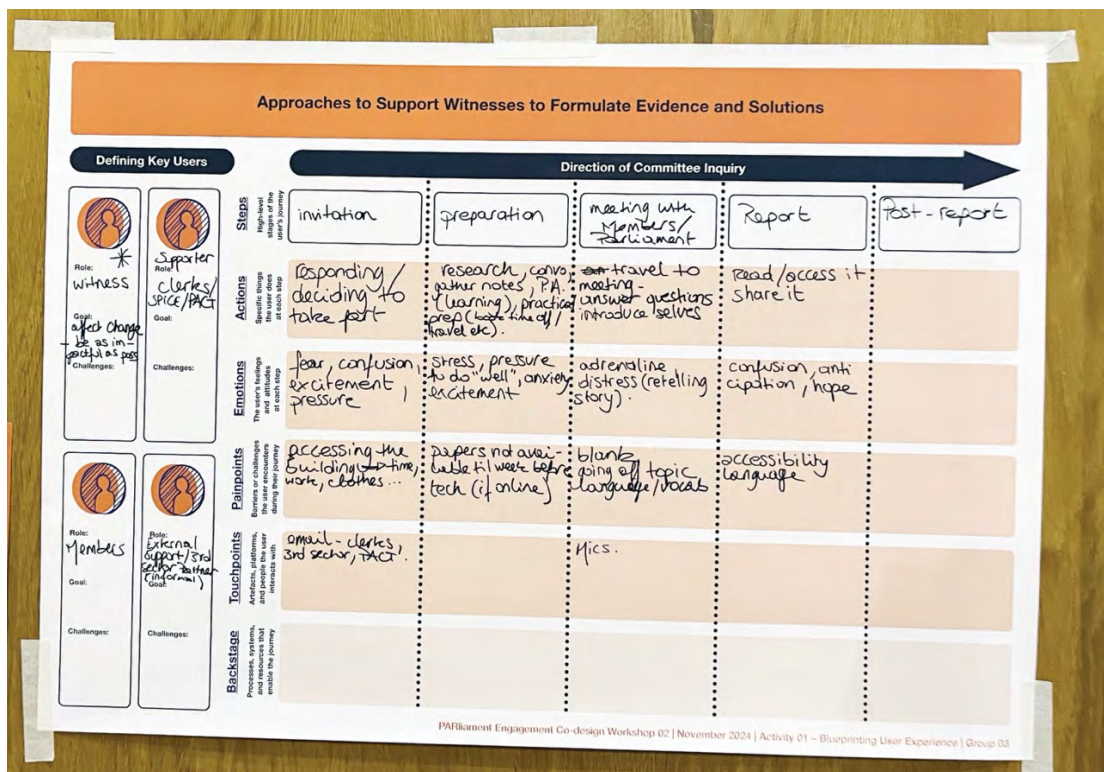 Approaches to Support Witnesses to Formulate Evidence and Solutions
Defining Key Users
Direction of Committee Inquiry
Role:
witness
Goal:
affect change
- be as im-
pactful as poss
Challenges:
Supporter
Role:
clerks/
SPICE/PACT
Goal:
Challenges:
Role:
Members
Goal:
Challenges:
Role:
External
support/3rd
sector partner
(informal)
Goal:
Challenges:
Steps
High-level
stages of the
user's journey
invitation
preparation
meeting with
Members/
Parliament
Report
Post-report
Actions
Specific things
the user does
at each step
responding/
deciding to
take part
research, convo,
gather notes, P.A.
(learning), practical
prep ( time off/
travel etc).
travel to
meeting-
answer questions
introduce selves
Read/access it
share it
Emotions
The user's feelings
and attitudes
at each step
fear, confusion,
excitement,
pressure
stress, pressure
to do "well", anxiety
excitement
adrenaline
distress (retelling
story).
confusion, anti
cipation, hope
Painpoints
Barriers or challenges
the user encounters
during their journey
accessing the
building → time,
work, clothes...
papers not avai-
lable til week before
tech (if online)
blank
going off topic
language/vocab
accessibility
language
Touchpoints
Artefacts, platforms,
and people the user
interacts with
email - clerks,
3rd sector, PACT.
Mics.
Backstage
Processes, systems,
and resources that
enable the journey
PARliament Engagement Co-design Workshop 02 | November 2024 | Activity 01 – Blueprinting User Experience | Group 03